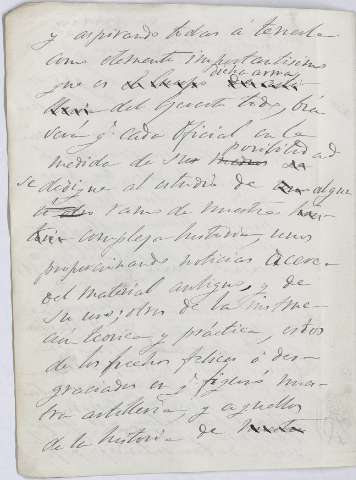 y aspirando todas á tenerla
como elemento importantisimo
que es dicha arma
del Ejercito todo, bien
verá q.e cada Oficial en la
medida de sus posibilidad
se dedique al estudio de algun
ramo de nuestra
compleja historia, unos
proporcionando noticias acerca
del material antiguo, y de
su uso; otros de la instruc-
cion teorica y práctica, estos
de los hechos felices ó des-
graciados en q.e figuró nues-
tra artilleria, y aquellos
de la historia de